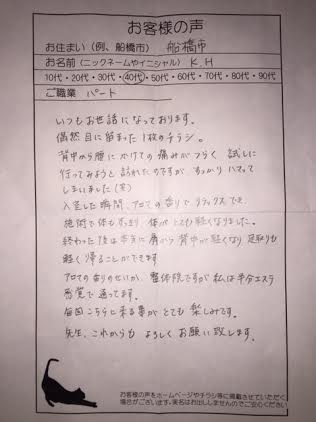 お客様の声
お住まい（例、船橋市） 船橋市
お名前（ニックネームやイニシャル） K.H
10代・20代・30代・40代・50代・60代・70代・80代・90代
ご職業 パート
いつもお世話になっております。
偶然目に留まった1枚のチラシ。
背中から腰にかけての痛みがつらく 試しに
行ってみようと訪れたのですが、すっかりハマって
しまいました(笑)
入室した瞬間、アロマの香りでリラックスでき
施術で体もすっきり、体がとても軽くなりました。
終わった後は本当に肩から背中が軽くなり 足取りも
軽く帰ることができます
アロマの香りのせいか、整体院ですが私は半分エステ
感覚で通ってます。
毎回こちらに来る事がとても楽しみです。
先生、これからも よろしくお願い致します。
お客様の声をホームページやチラシ等に掲載させていただく
場合がございます。実名はお出ししませんのでご安心ください